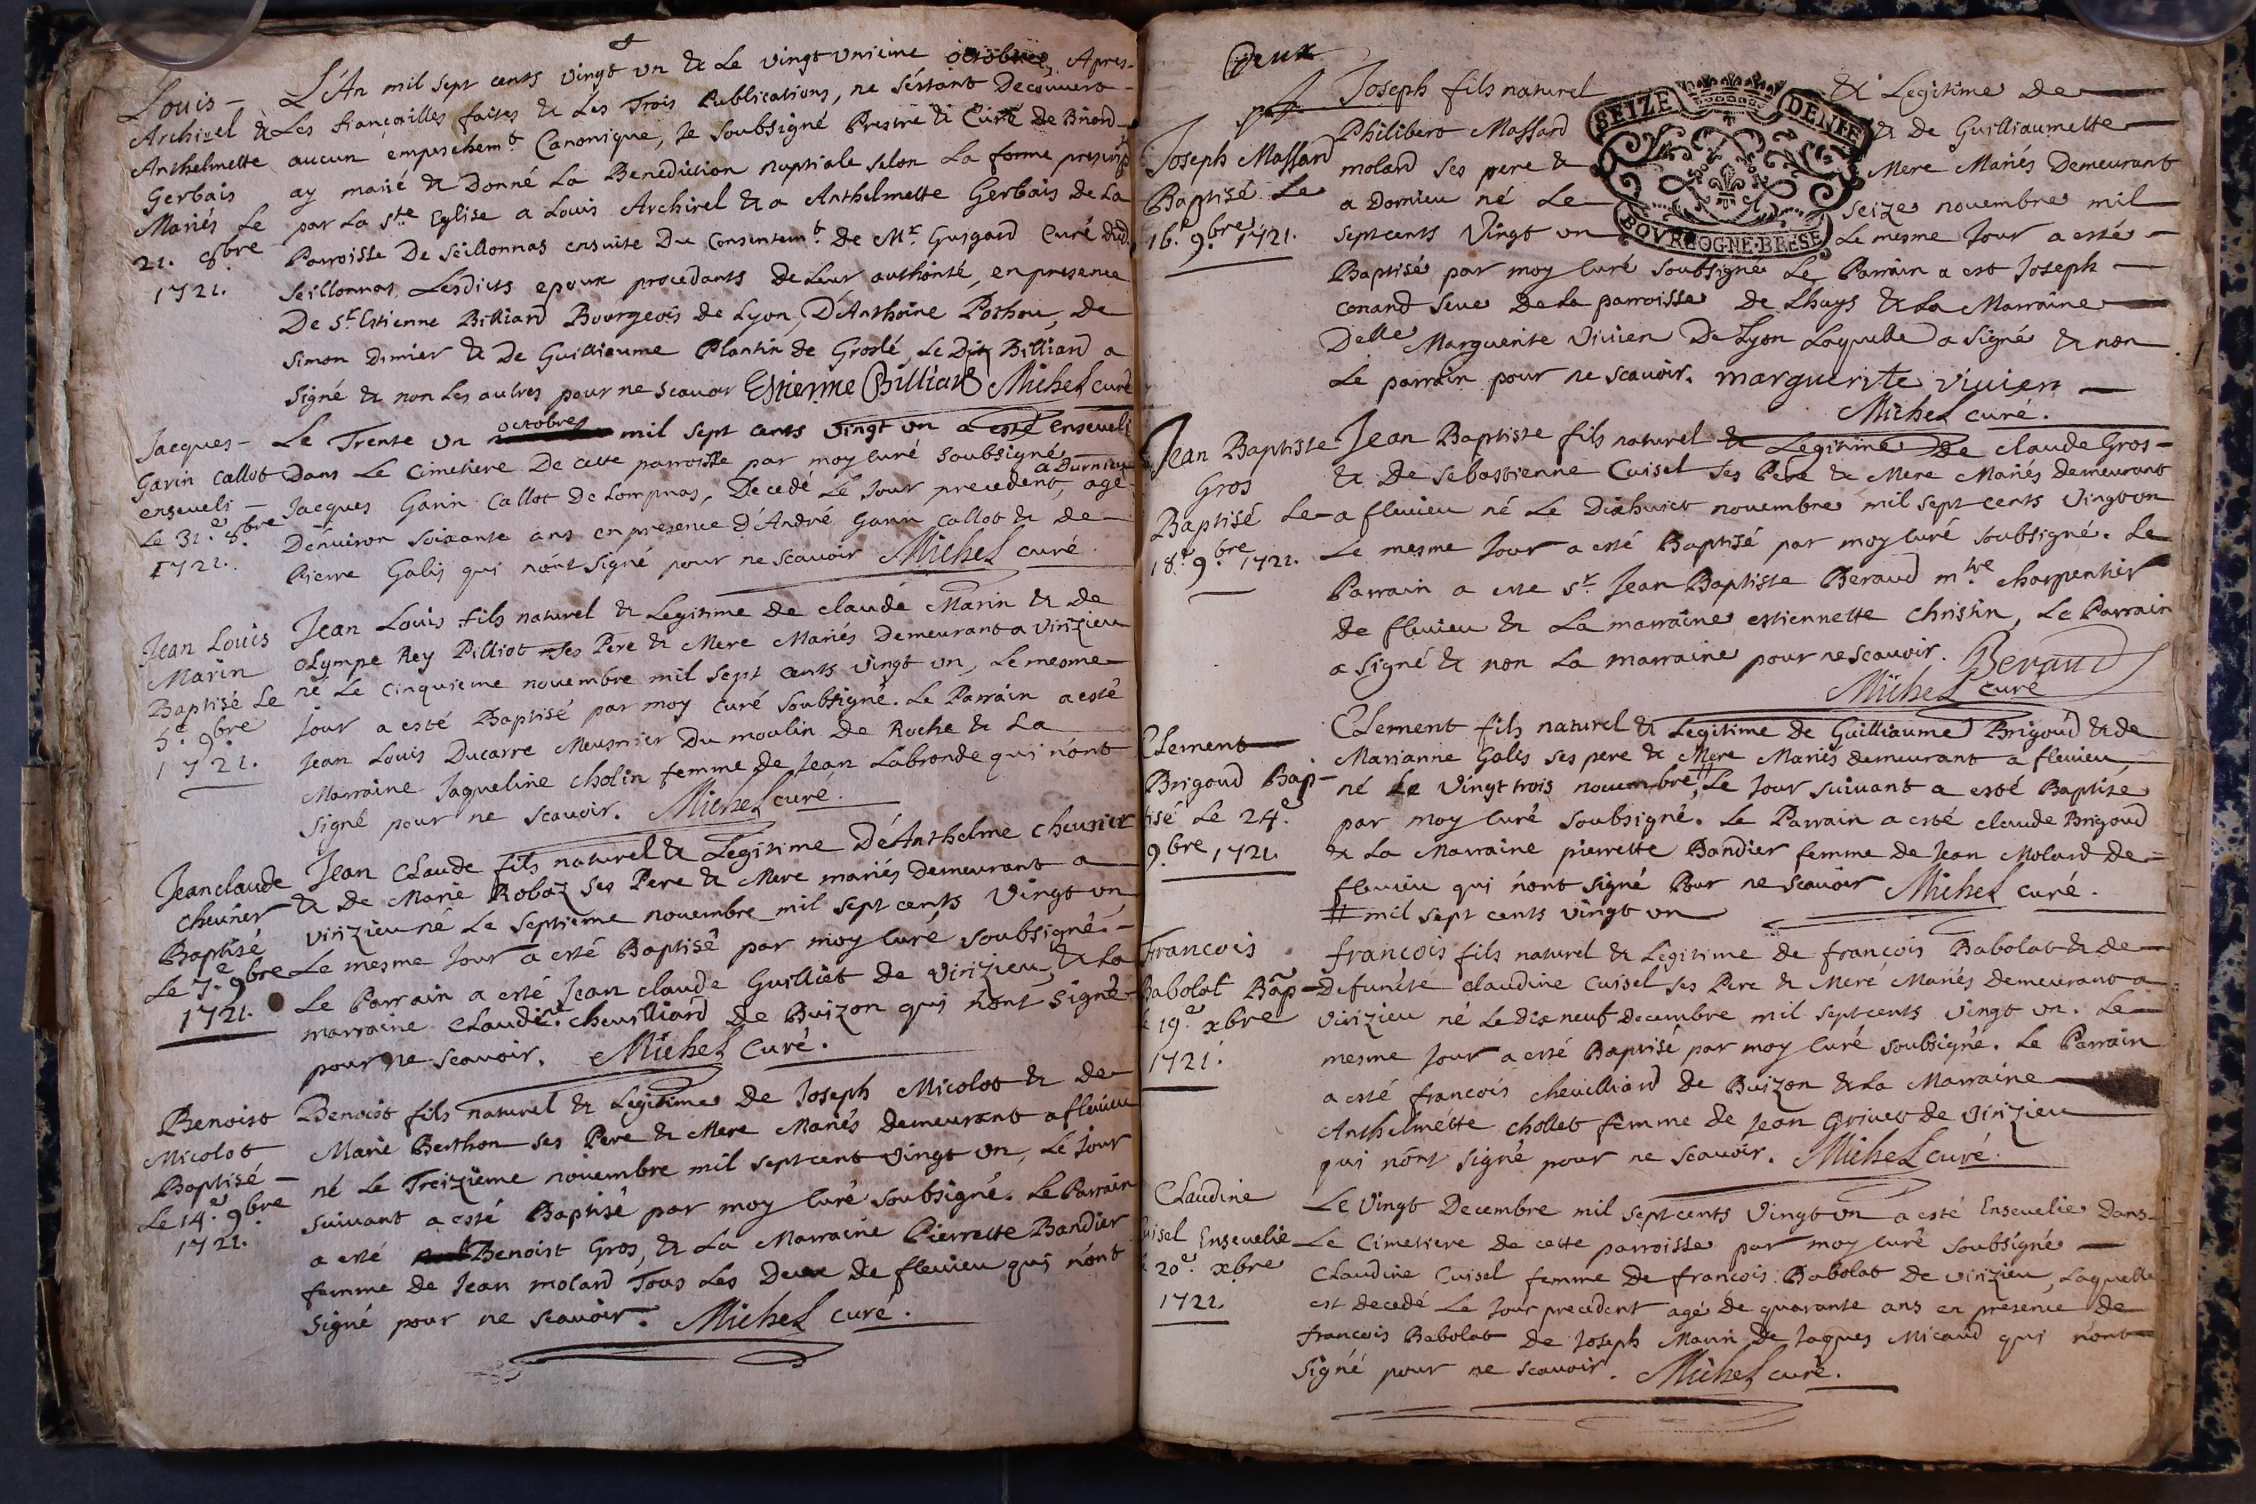 Louis –
Archirel &
Anthelmette
Gerbais
Mariés Le
21. 8bre
1721.
L'An mil sept cents vingt un & Le vingt unieme octobre, Apres
Les fiançailles faites & Les Trois Publications, ne s'estant Decouvert
aucun empeschemt Canonique, Je soubsigné Prestre & Curé de Briord
ay marié & Donné La Benediction nuptiale selon La forme prescripte
par La Ste Eglise a Louis Archirel & a Anthelmette Gerbais de La
Parroisse De Seillonnas ensuite Du Consentemt de Mr Guigard Curé dud.
Seillonnas, Lesdicts epoux procedants de Leur authorité, en presence
De Sr Estienne Billiard Bourgeois de Lyon, D'Anthoine Pochon, de
Simon Dimier & De Guilliaume Plantin de Groslé, Le Dit Billiard a
Signé & non Les autres pour ne scavoir Estienne Billiard Michel curé
Jacques –
Garin Callot
enseveli –
Le 31.e 8bre
1721.
octobre
Le Trente un mil sept cents vingt un a esté Enseveli
Dans Le Cimetiere De cette parroisse par moy Curé soubsigné
a Durnieu
Jacques Garin Callot de Lompnas, Decedé Le Jour precedent, agé
D'environ soixante ans en presence d'André Garin Callot & de
Pierre Galis qui n'ont signé pour ne scavoir Michel curé.
Jean Louis
Marin
Baptisé Le
5.e 9bre
1721.
Jean Louis fils naturel & Legitime de claude Marin & de
Olympe Rey Pilliot ses Pere & Mere Mariés Demeurant a Virizieu
né Le cinquieme novembre mil sept cents vingt un, Le mesme
Jour a esté Baptisé par moy curé soubsigné. Le Parrain a esté
Jean Louis Ducarre Meusnier Du moulin de Roche & La
Marraine Jaqueline Cholin femme de Jean Labronde qui n'ont
signé pour ne scavoir. Michel curé.
Jean claude
Cheurier
Baptisé
Le 7.e 9bre
1721.
Jean Claude fils naturel & Legitime D'Anthelme cheurier
& de Marie Robaz ses Pere & Mere mariés demeurant a
virizieu né Le septieme novembre mil sept cents vingt un
Le mesme Jour a esté Baptisé par moy Curé soubsigné. –
Le Parrain a esté Jean claude Guilliet de virizieu, & La
marraine Claudine cheuilliard de Buizon qui n'ont signé
pour ne scavoir. Michel curé.
Benoist
Micolot
Baptisé –
Le 14.e 9bre
1721.
Benoist fils naturel & Legitime de Joseph Micolot & de
Marie Berthon ses Pere & Mere Mariés demeurant a fleuieu
né Le Treizieme novembre mil sept cent vingt un, Le Jour
suivant a esté Baptisé par moy Curé soubsigné. Le Parrain
a esté Benoist Gros, & La Marraine Pierrette Bandier
femme de Jean molard Tous Les Deux de fleuieu qui n'ont
Signé pour ne scavoir. Michel curé.
Deux
Joseph Massard
Baptisé Le
16.e 9bre 1721.
SEIZE DENIE
BOVRGOGNE·BRESE
Joseph fils naturel & Legitime De
Philibert Massard & de Guilliaumette
molard ses pere & Mere Mariés Demeurant
a Dornieu né Le seize novembre mil
sept cents Vingt un Le mesme Jour a esté –
Baptisé par moy Curé soubsigné Le Parrain a est Joseph –
conand seue De La parroisse De Lhuys & La Marraine
Delle Marguerite Vivien De Lyon Laquelle a signé & non
Le parrain pour ne scavoir. marguerite vivien –
Michel curé.
Jean Baptiste
Gros
Baptisé Le
18.e 9bre 1721.
Jean Baptiste fils naturel & Legitime De claude Gros –
& De Sebastienne Cuisel ses Pere & Mere Mariés demeurant
a fleuieu né Le Dixhuict novembre mil sept cents vingt un
Le mesme Jour a esté Baptisé par moy Curé soubsigné. Le
Parrain a este Sr Jean Baptiste Beraud mtre charpentier
de fleuieu & La marraine estiennette Christin, Le Parrain
a signé & non La marraine pour ne scavoir. Beraud
Michel curé
Clement
Brigoud Bap-
tisé Le 24.e
9bre 1721.
Clement fils naturel & Legitime de Guilliaume Brigoud & de
Marianne Galis ses pere & Mere Mariés demeurant a fleuieu
né Le Vingt trois novembre #, Le Jour suivant a esté Baptisé
par moy Curé soubsigné. Le Parrain a esté claude Brigoud
& La Marraine pierrette Bandier femme de Jean Molard de
fleuieu qui n'ont signé Pour ne scavoir Michel curé.
# mil sept cents vingt un
Francois
Babolat Bap-
é 19.e xbre
1721.
françois fils naturel & Legitime de françois Babolat & de
Defuncte claudine Cuisel ses Pere & Mere Mariés demeurant a
Virizieu né Le Dix neuf Decembre mil sept cents Vingt un. Le
mesme Jour a esté Baptisé par moy Curé soubsigné. Le Parrain
a esté françois cheuilliard de Buizon & La Marraine
Anthelmette chollet femme de Jean Grivet de virizieu
qui n'ont signé pour ne scavoir. Michel curé.
Claudine
uisel Ensevelie
20.e xbre
1721.
Le Vingt Decembre mil sept cents Vingt un a esté Ensevelie Dans
Le Cimetiere de cette parroisse par moy Curé soubsigné –
Claudine Cuisel femme de françois Babolat de virizieu, Laquelle
est decedé Le Jour precedent agé de quarante ans en presence de
françois Babolat de Joseph Marin De Jaques Micaud qui n'ont
Signé pour ne scavoir. Michel curé.